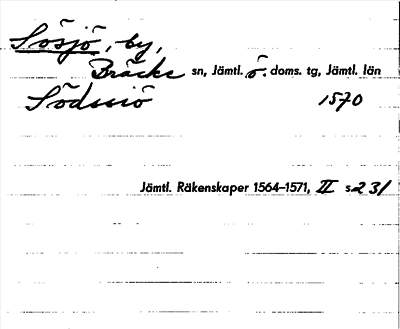 Sösjö, by,
Bräcke sn, Jämtl. ö. doms. tg, Jämtl. län
Södssiö 1570
Jämtl. Räkenskaper 1564–1571, II s 231